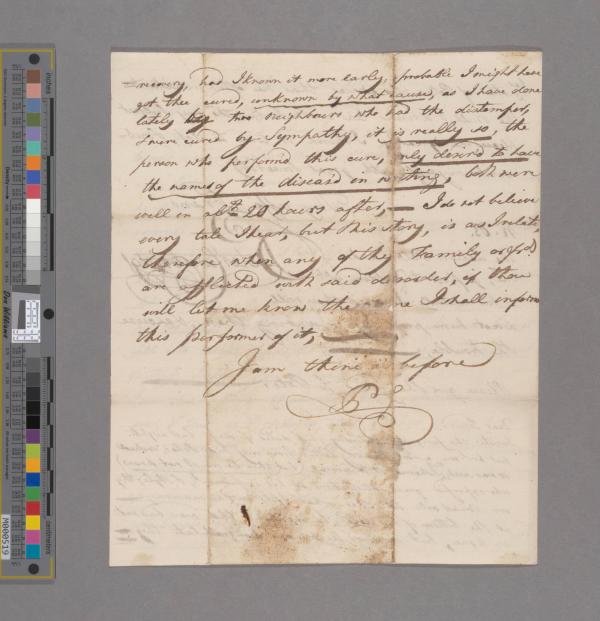 recovery, had I known it more early, probable I might have
got thee cured, unknown by what cause, as I have done
lately two neighbours who had the distemper,
& were cured by Sympathy, it is really so, the
person who performed this cure, only desir'd to have
the names of the diseas'd in writing, both were
well in abt. 20 hours after, — I do not believe
every tale I hear, but this story, is as I relate,
therefore when any of thy Family or
are afflicted with said disorder, if thou
will let me know the I shall inform
this performer of it,
I am thine as before
inches
centimeters
Don Williams
M000519